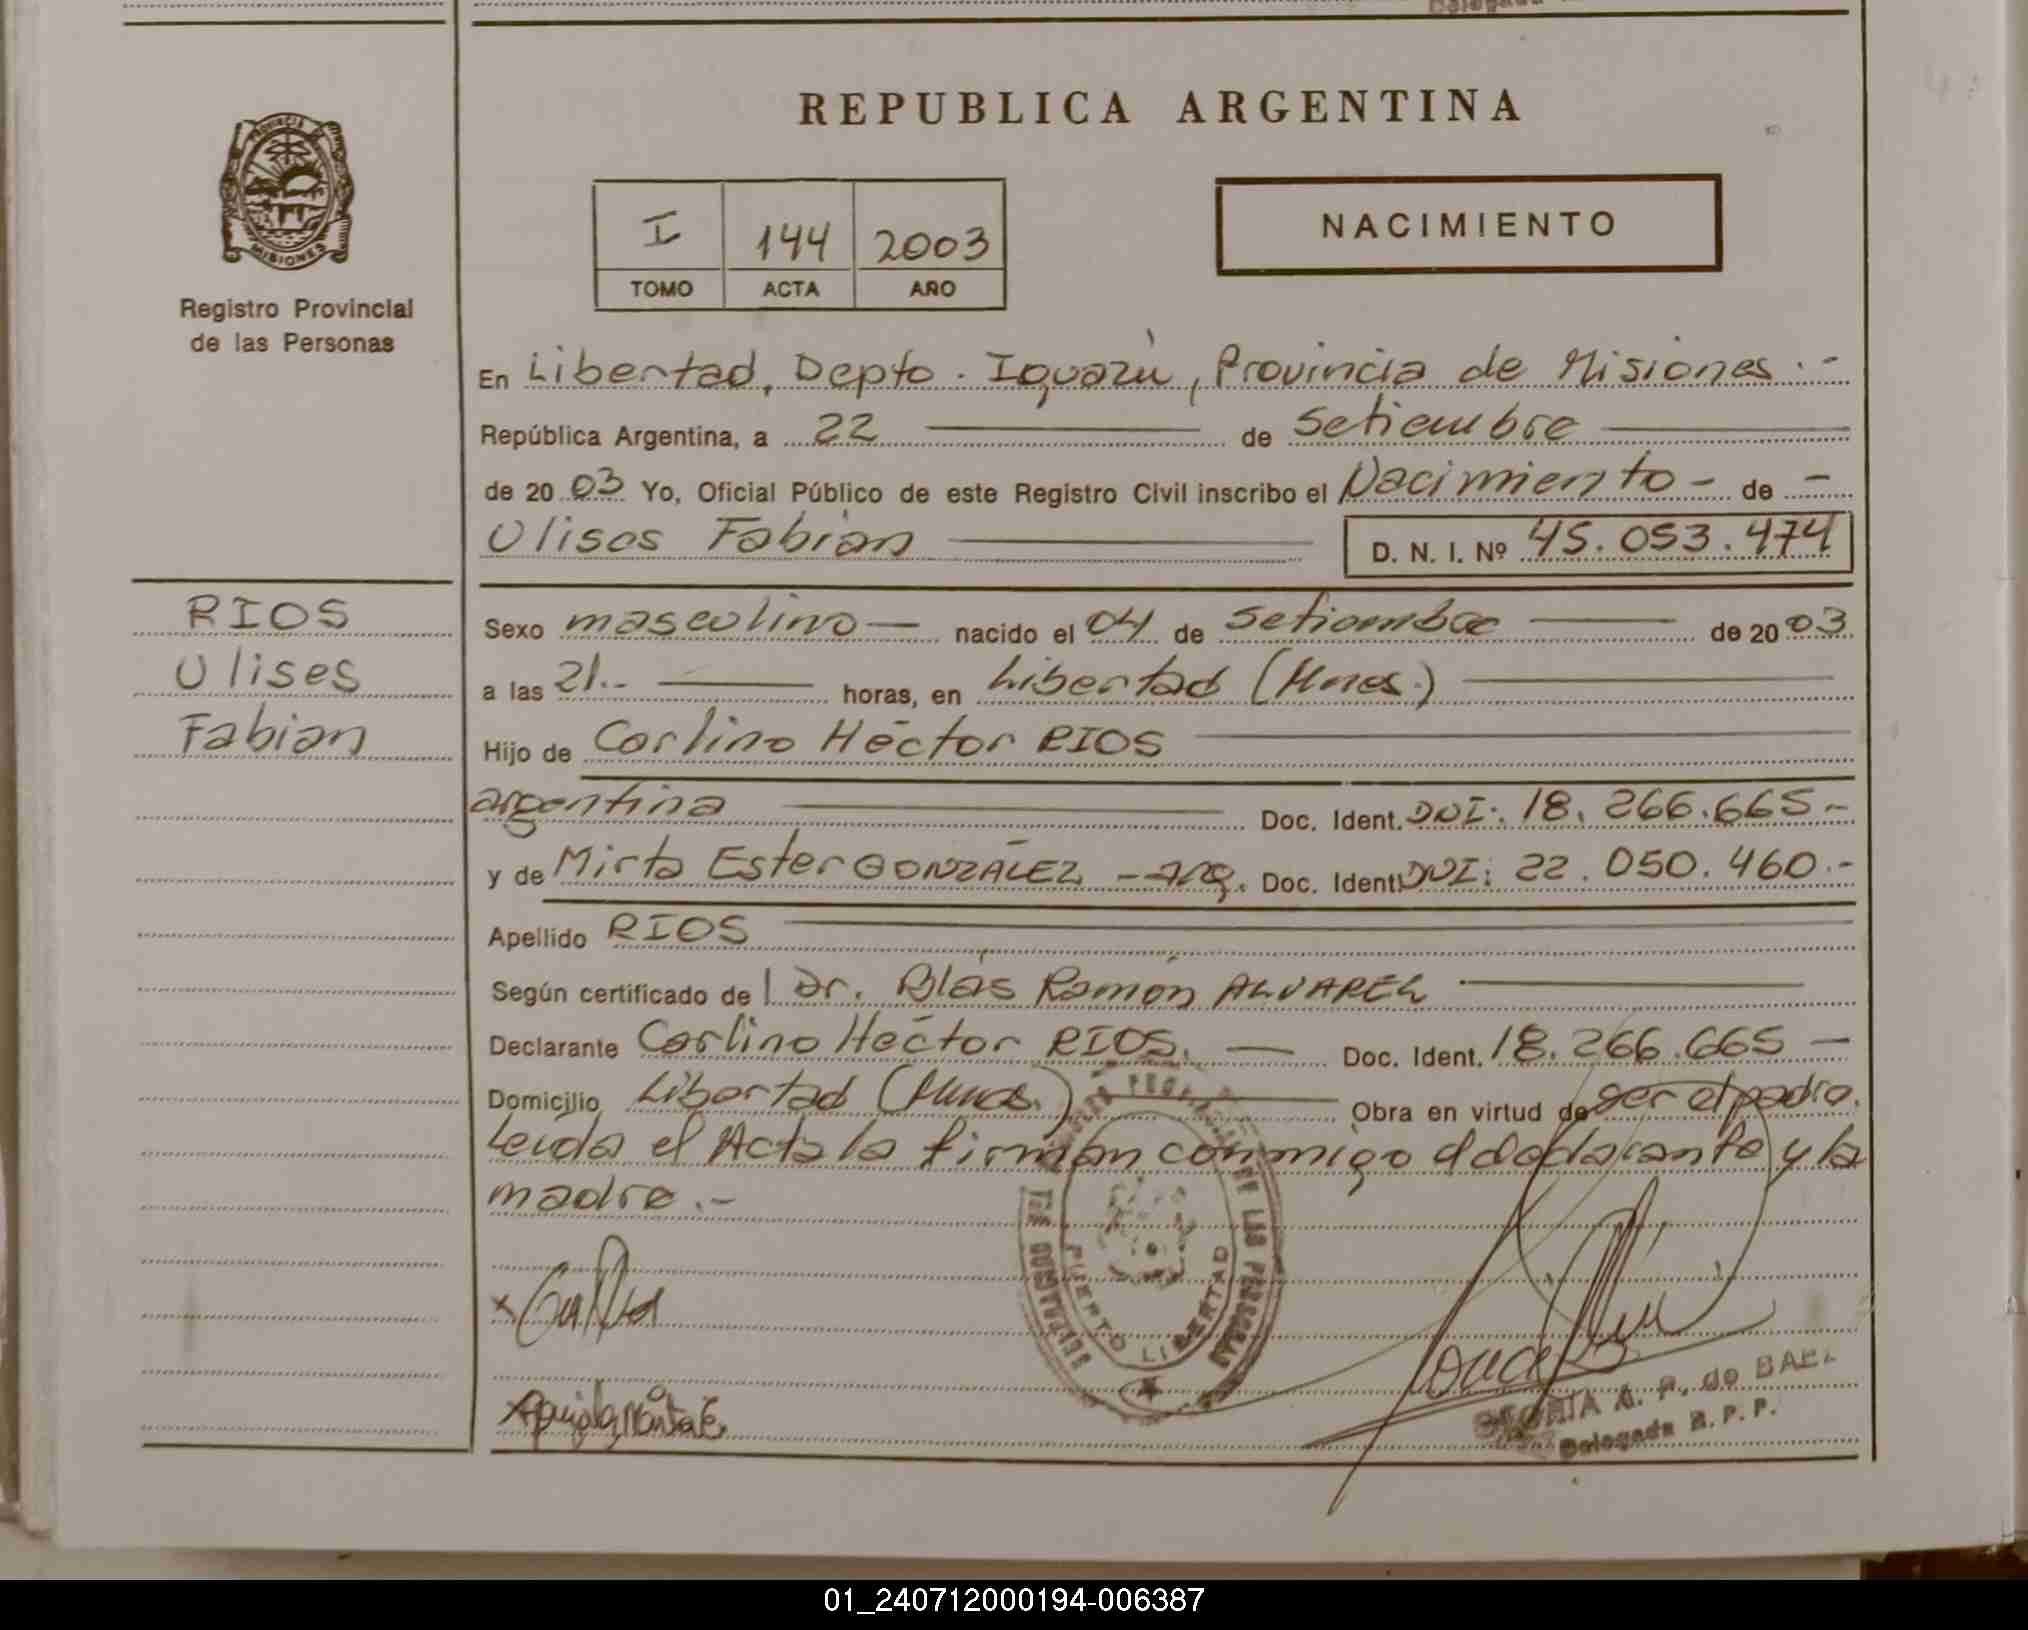 REPUBLICA ARGENTINA
PROVINCIA DE
MISIONES
Registro Provincial
de las Personas
I 144 2003
TOMO ACTA AÑO
NACIMIENTO
En Libertad, Depto. Iguazú, Provincia de Misiones.-
República Argentina, a 22 de Setiembre
de 2003 Yo, Oficial Público de este Registro Civil inscribo el Nacimiento - de -
Ulises Fabián D. N. I. Nº 45.053.474
RIOS
Ulises
Fabian
Sexo masculino nacido el 04 de Setiembre de 2003
a las 21.- horas, en Libertad (Mnes.)
Hijo de Carlino Héctor RIOS
argentina Doc. Ident. DNI: 18.266.665-
y de Mirta Ester GONZÁLEZ - arg. Doc. Ident. DNI: 22.050.460.-
Apellido RIOS
Según certificado de Dr. Blás Ramón ALVAREZ
Declarante Carlino Héctor RIOS. Doc. Ident. 18.266.665
Domicilio Libertad (Mnes.) Obra en virtud de ser el padre.
Leída el Acta la firman conmigo el declarante y la
madre.-
DE LAS PERSONAS
PUERTO LIBERTAD
A. P. de BAEZ
Delegada R. P. P.
01_240712000194-006387